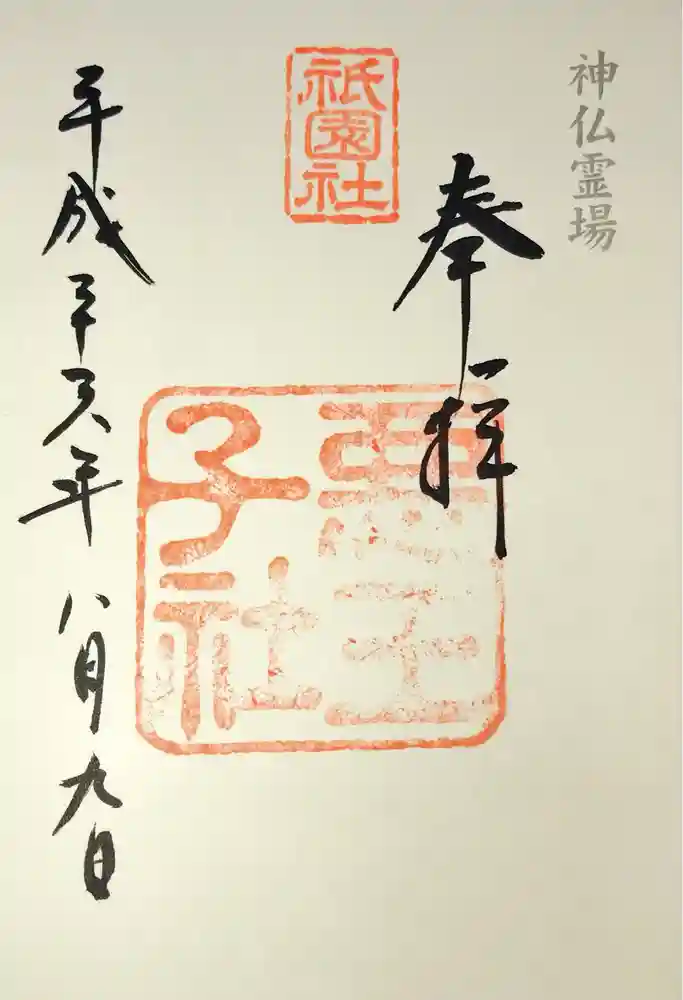 神仏霊場
奉拝
祇園社
惡王子社
平成二十六年八月九日